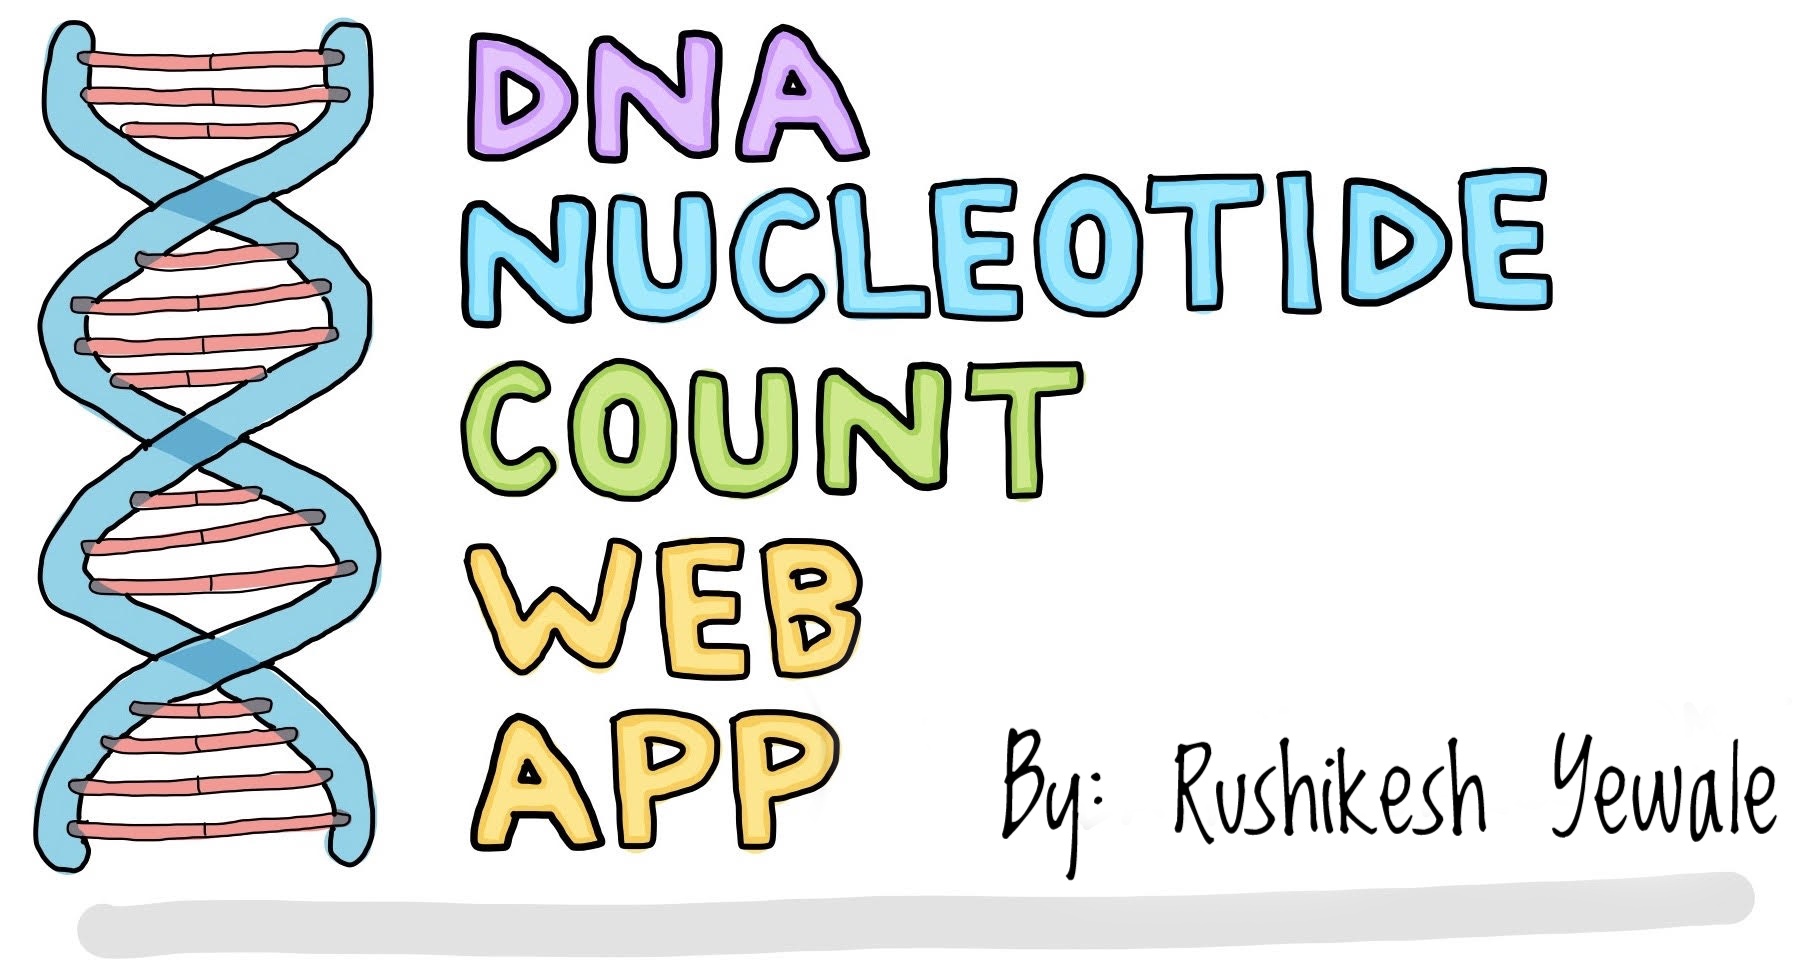 DNA
NUCLEOTIDE
COUNT
WEB
APP
By: Rushikesh Yewale